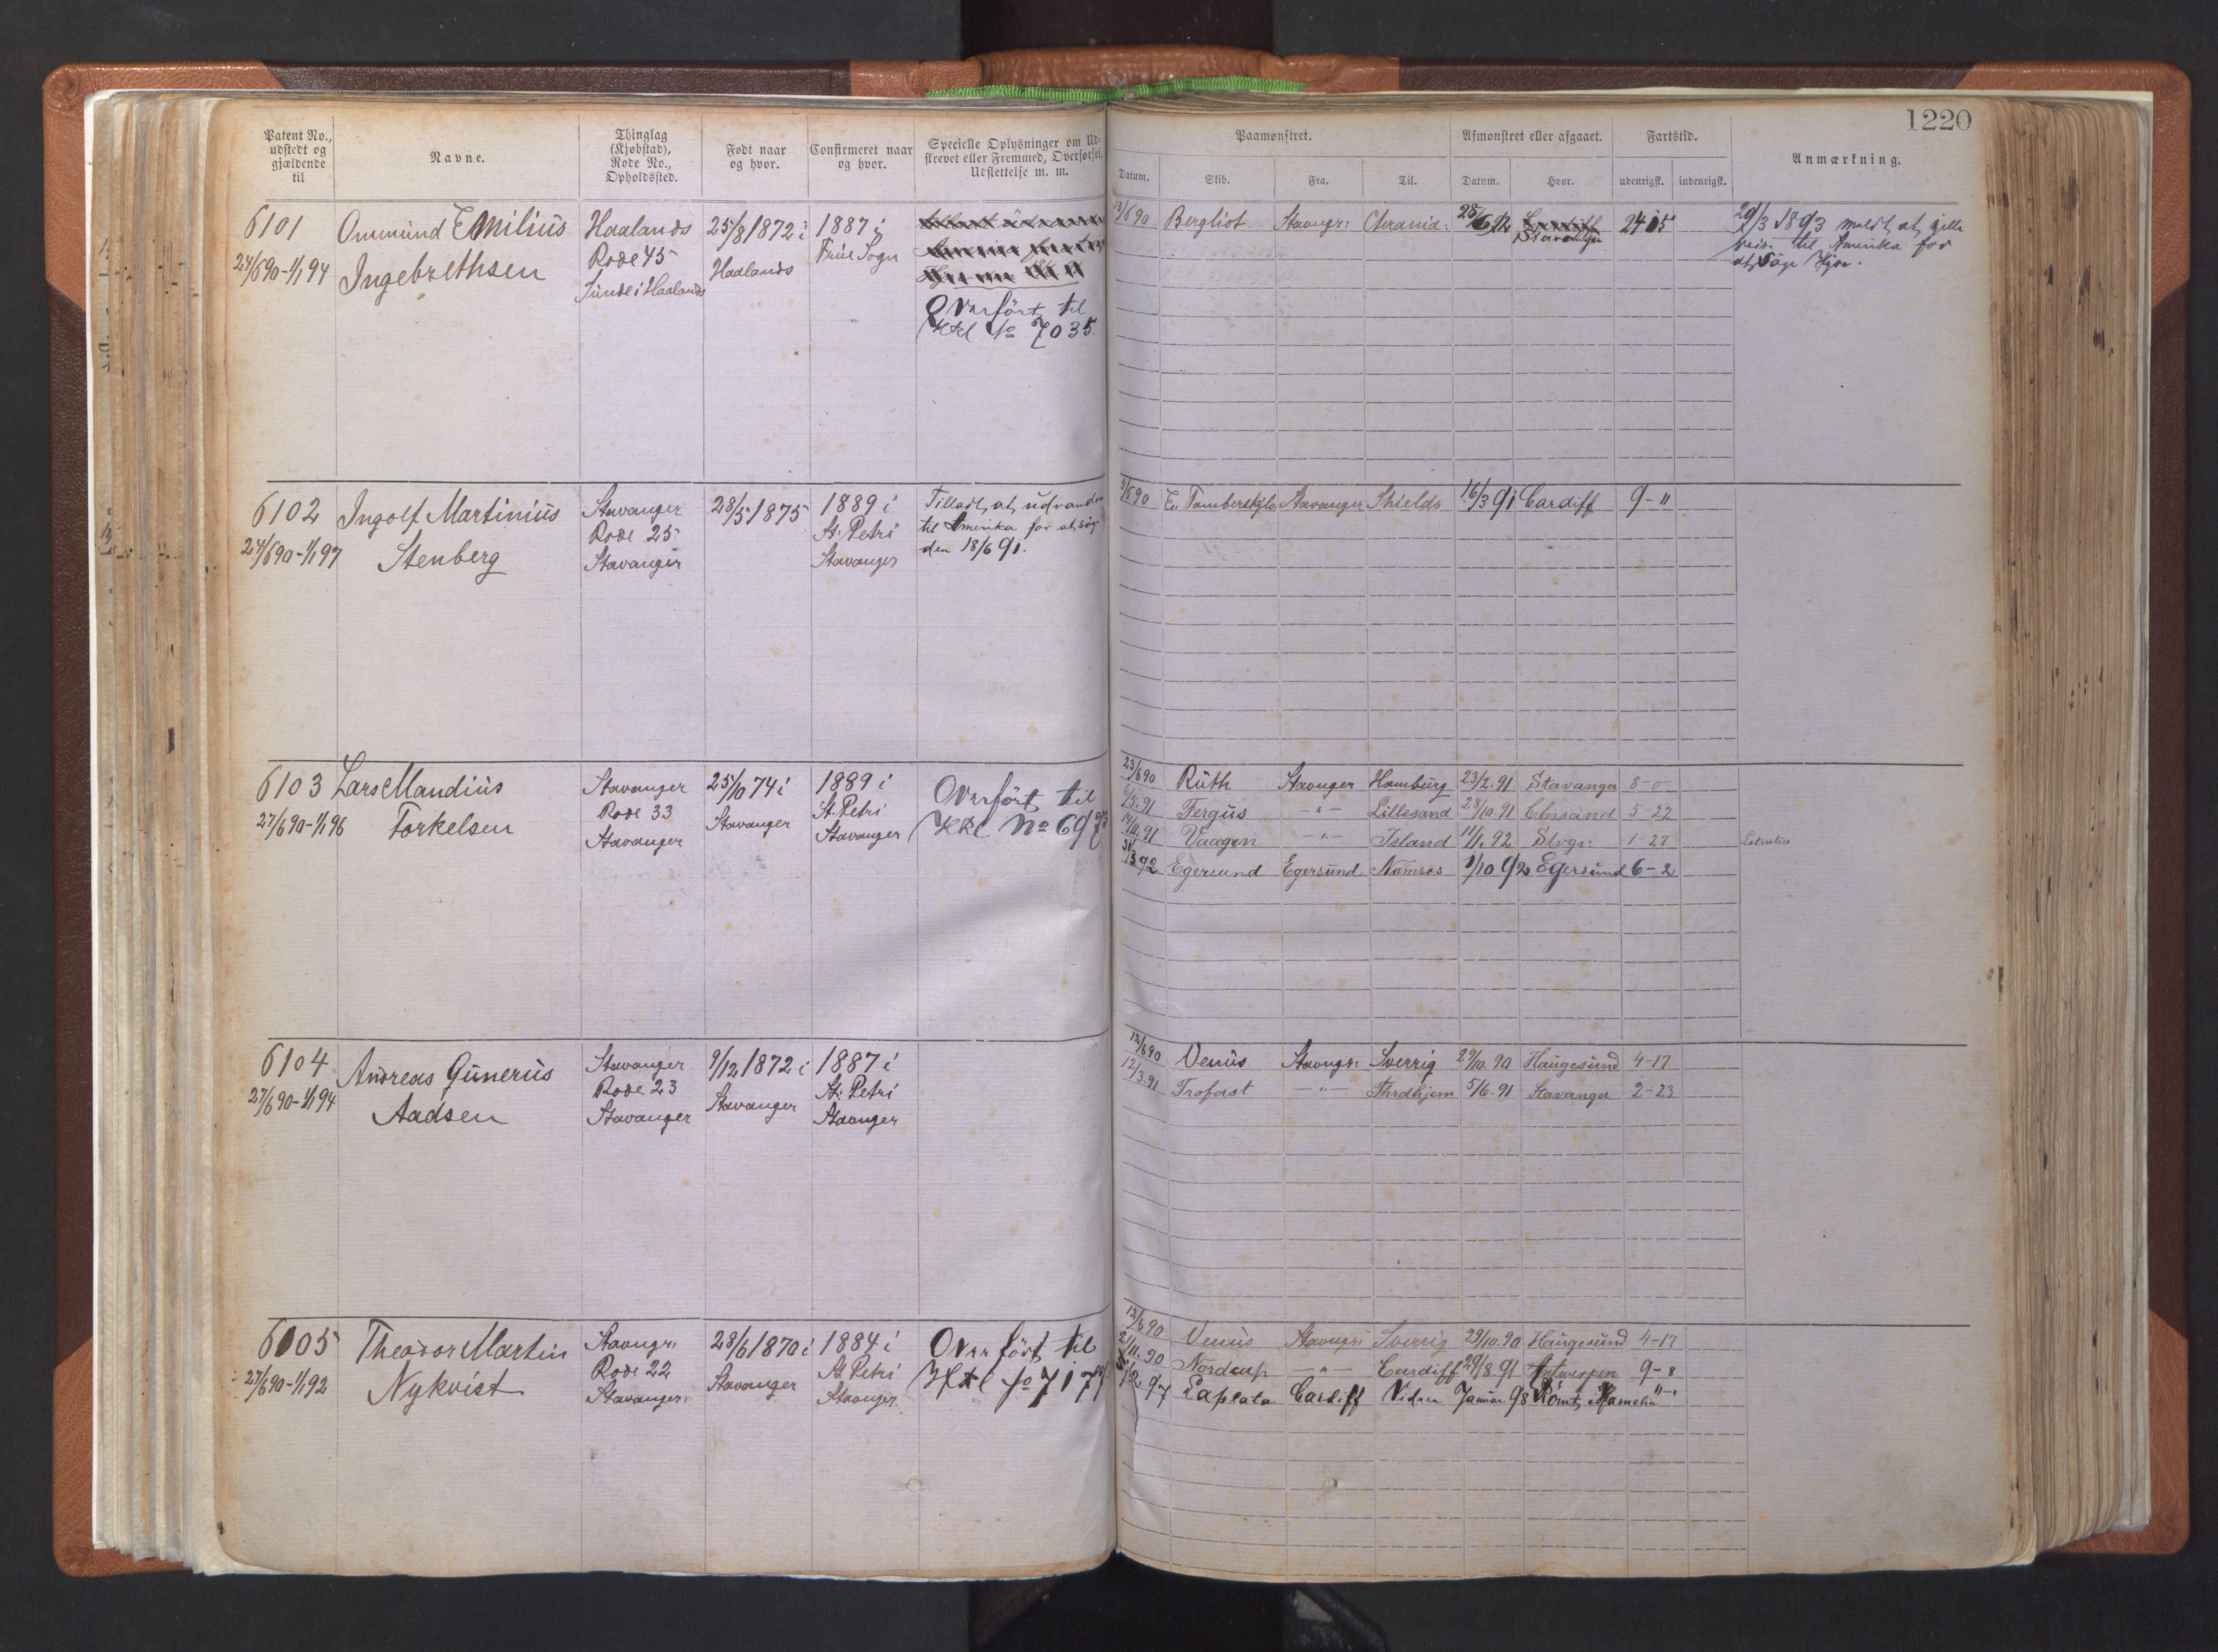 1220
Patent No., udstedt og gjældende til
Navne.
Thinglag (Kjøbstad), Rode No., Opholdssted.
Født naar og hvor.
Confirmeret naar og hvor.
Specielle Oplysninger om Udskrevet eller Fremmed, Overførsel, Udslettelse m. m.
Paamønstret.
Afmønstret eller afgaaet.
Fartstid.
Anmærkning.
Datum. Skib. Fra. Til. Datum. Hvor. udenrigsk. indenrigsk.
6101
24/6 90-1/1 94
Ommünd Emiliüs
Ingebrethsen
Haalands
Rode 45
Sünde i Haalands
25/8 1872 i
Haalands
1887 i
Früe Sogn
Overfört til
No 7035.
13/6 90 Bergliot Stavngr: Chrania: 28/6 92 Stavanger 24-15
29/3 1893 meldt, at ville
reise til Amerika for
at söge Hyre.
6102
24/6 90-1/1 97
Ingolf Martiniüs
Stenberg
Stavanger
Rode 25
Stavanger
28/5 1875
1889 i
St. Petri
Stavanger
Tilladt, at, udvandre
til Amerika for at, söge
den 18/6 91.
Stavanger Shields 16/3 91 Cardiff 9-"
6103
27/6 90-1/1 96
Lars Mandiüs
Torkelsen
Stavanger
Rode 33
Stavanger
25/10 74 i
Stavanger
1889 i
St. Petri
Stavanger
Overfört til
No
23/6 90 Rüth Stavnger Hambürg 23/2.91 Stavanger 8-0
6/5.91 Fergüs -"- Lillesand 28/10.91 Chrsand 5-22
14/11.91 Vaagen -"- Island 11/1.92 Stvgr: 1-27
31/3 92 Egersund Egersünd Namsos 1/10 92 Egersünd 6-2
6104
27/6 90-1/1 94
Andreas Günerüs
Aadsen
Stavanger
Rode 23
Stavanger
9/12 1872 i
Stavanger
1887 i
St: Petri
Stavnger
12/6 90 Venüs Stavngr: Sverrig 29/10.90 Haügesünd 4-17
12/3.91 Trofast -"- Thrdhjem 5/6.91 Stavanger 2-23
6105
27/6 90-1/1 92
Theodor Martin
Nykvist
Stavngr:
Rode 22
Stavanger:
28/6 1870 i
Stavanger
1884 i
St. Petri
Stavnger
Overfört til
12/6 90 Venüs Stavngr: Sverrig 29/10.90 Haügesünd 4-17
Nordcap -"- Cardiff 29/8.91 Antwerpen 9-8
Laplata Cardiff Januar 98 Römt,